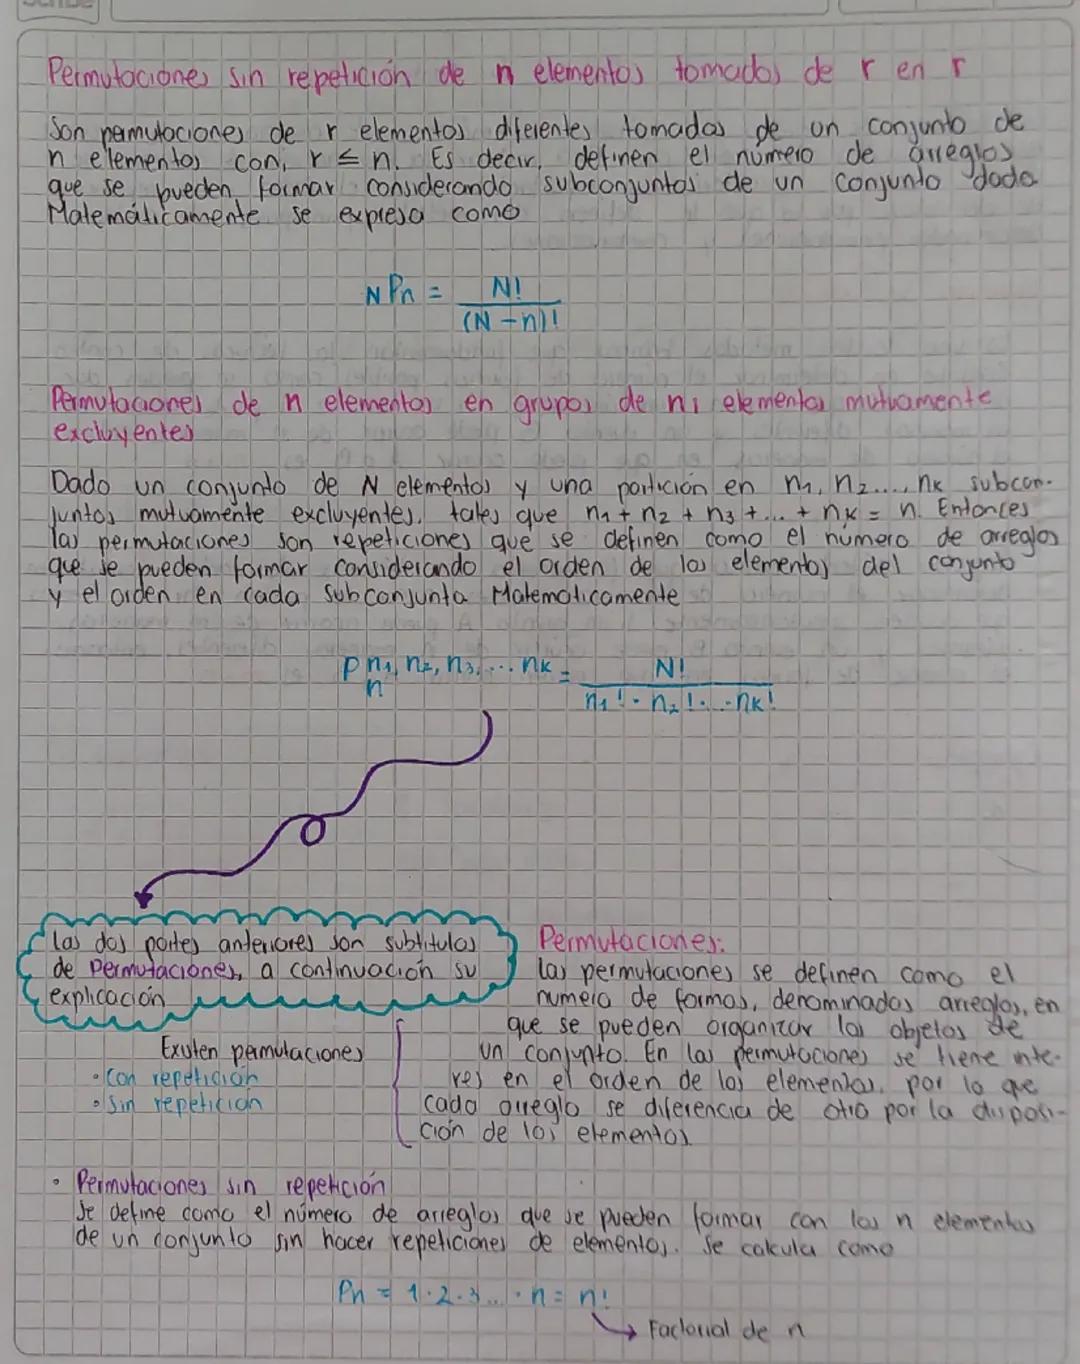 Scribe
Permutaciones sin repetición de n elementos tomados de r en r
Son permutaciones de r elementos diferentes tomados de un conjunto de
n elementos con, r ≤ n. Es decir, definen el número de arreglos
que se pueden formar considerando subconjuntos de un conjunto dado
Matemáticamente se expresa como
NPn = N! / (N-n)!
Permutaciones de n elementos en grupos de n1 elementos mutuamente
excluyentes
Dado un conjunto de N elementos y una partición en n1, n2..., nk subcon-
juntos mutuamente excluyentes, tales que n1 + n2 + n3 + ... + nk = n. Entonces
las permutaciones son repeticiones que se definen como el número de arreglos
que se pueden formar considerando el orden de los elementos del conjunto
y el orden en cada subconjunta Matemáticamente
P n1, n2, n3, ... nk n = N! / n1! · n2! · ... · nk!
las dos partes anteriores son subtitulos
de Permutaciones, a continuación su
explicación
Permutaciones:
las permutaciones se definen como el
numero de formas, denominadas arreglos, en
que se pueden organizar los objetos de
un conjunto. En las permutaciones se tiene inte-
res en el orden de los elementos. por lo que
cada arreglo se diferencia de otro por la disposi-
ción de los elementos
Existen permutaciones
• Con repetición
• Sin repetición
• Permutaciones sin repetición
Se define como el número de arreglos que se pueden formar con los n elementos
de un conjunto sin hacer repeticiones de elementos. Se calcula como
Pn = 1·2·3... · n = n!
Factorial de n